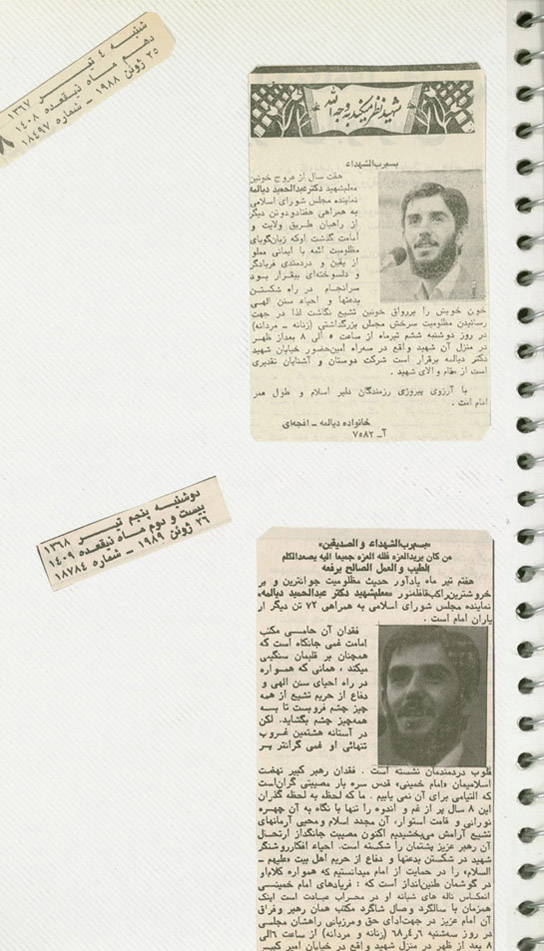 شنبه ٤ تیر ۱۳۶۷
دهم ماه ذیقعده ۱۴۰۸
۲۵ ژوئن ۱۹۸۸ – شماره ۱۸۴۹۷
شهید نظر میکند به وجه‌الله
بسم‌رب‌الشهداء
هفت سال از عروج خونین
معلم‌شهید دکتر عبدالحمید دیالمه
نماینده مجلس شورای اسلامی
به همراهی هفتادودوتن دیگر
از راهیان طریق ولایت و
امامت گذشت اوکه زبان‌گویای
مظلومیت ائمه با ایمانی مملو
از یقین و دردمندی فریادگر
و دلسوخته‌ای بیقرار بود
سرانجام در راه شکستن
بدعتها و احیاء سنن الهی
خون خویش را بررواق خونین تشیع نگاشت لذا در جهت
رسانیدن مظلومیت سرخش مجلس بزرگداشتی (زنانه – مردانه)
در روز دوشنبه ششم تیرماه از ساعت ۵ الی ۸ بعداز ظهر
در منزل آن شهید واقع در سه‌راه امین‌حضور خیابان شهید
دکتر دیالمه برقرار است شرکت دوستان و آشنایان تقدیری
است از مقام والای شهید .
با آرزوی پیروزی رزمندگان دلیر اسلام و طول عمر
امام امت .
خانواده دیالمه – افجه‌ای
آ– ۷۵۸۲
دوشنبه پنجم تیر ۱۳۶۸
بیست و دوم ماه ذیقعده ۱۴۰۹
۲۶ ژوئن ۱۹۸۹ – شماره ۱۸۷۸۴
«بسم‌رب‌الشهداء و الصدیقین»
من کان یریدالعزه فلله العزه جمیعا الیه یصعدالکلم
الطیب و العمل الصالح یرفعه
هفتم تیر ماه یادآور حدیث مظلومیت جوانترین و پر
خروشترین معلم‌شهید دکتر عبدالحمید دیالمه،
نماینده مجلس شورای اسلامی به همراهی ۷۲ تن دیگر از
یاران امام است .
فقدان آن حامی مکتب
امامت غمی جانکاه است که
همچنان بر قلبمان سنگینی
میکند ، همانی که همواره
در راه احیای سنن الهی و
دفاع از حریم تشیع از همه
چیز چشم فروبست تا بسه
همه‌چیز چشم بگشاید. لکن
در آستانه هشتمین غروب
تنهائی او غمی گرانتر بر
قلوب دردمندمان نشسته است . فقدان رهبر کبیر نهضت
اسلامیمان «امام خمینی» قدس سره بار مصیبتی گران‌است
که التیامی برای آن نمی یابیم . ما که لحظه به لحظه گذران
این ۸ سال پر از غم و اندوه را تنها با نگاه به آن چهره
نورانی و قامت استوار، آن مجدد اسلام ومحیی آرمانهای
تشیع آرامش می‌بخشیدیم اکنون مصیبت جانگداز ارتحال
آن رهبر عزیز پشتمان را شکسته است. احیاء افکارروشنگر
شهید در شکستن بدعتها و دفاع از حریم اهل بیت «علیهم –
السلام» را در حمایت از امام میدانستیم که همواره کلام‌او
در گوشمان طنین‌انداز است که : فریادهای امام خمینی
انعکاس ناله های شبانه او در محراب عبادت است اینک
همزمان با سالگرد وصال شاگرد مکتب همان رهبر وفراق
آن امام عزیز در جهت‌ادای حق ومرزبانی راهشان مجلسی
در روز سه‌شنبه ۶ر۴ر۶۸ (زنانه و مردانه) از ساعت ۶الی
بعد از ظهر در منزل شهید واقع در خیابان امیر کبیر